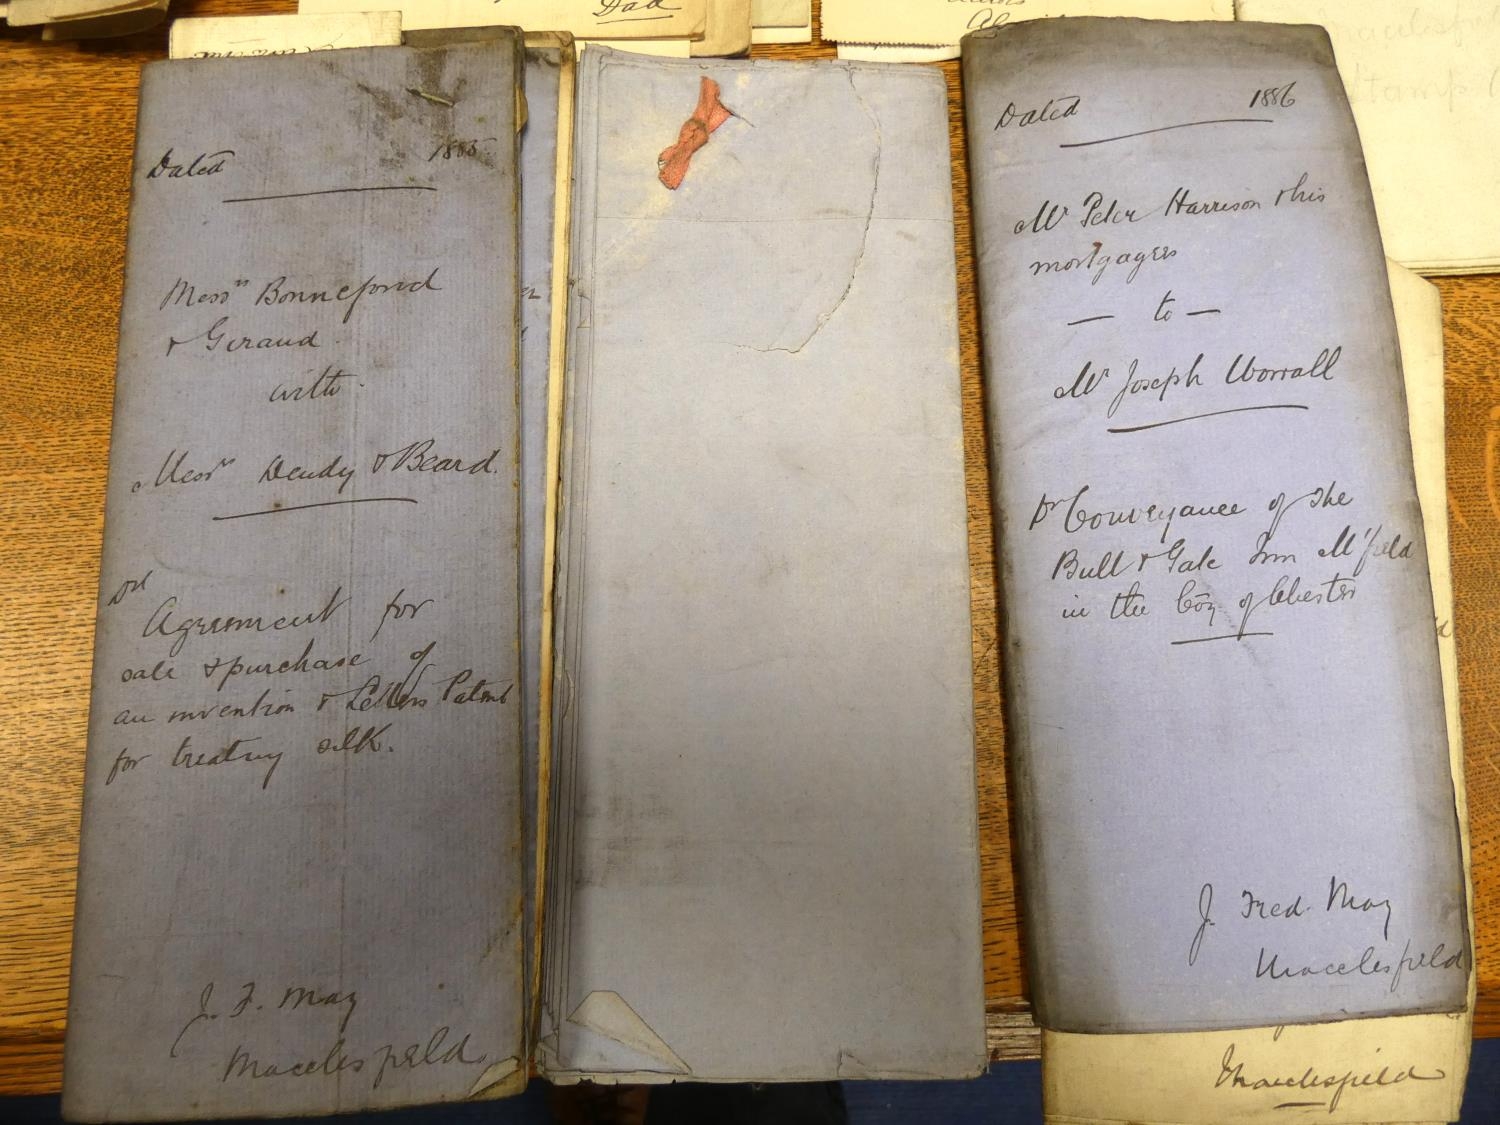 Dad
Dated 1885
Messrs Bonneford
& Geraud
with
Messrs Dendy & Beard.
Dft
Agreement for
sale & purchase of
an invention & Letters Patent
for treating silk.
J. F. May
Macclesfield
Dated 1886
Mr Peter Harrison & his
mortgagees
— to —
Mr Joseph Worrall
Dft Conveyance of The
Bull & Gate Inn M'field
in the Coy of Chester
J. Fred. May
Macclesfield
Macclesfield
Macclesfield
Stamp